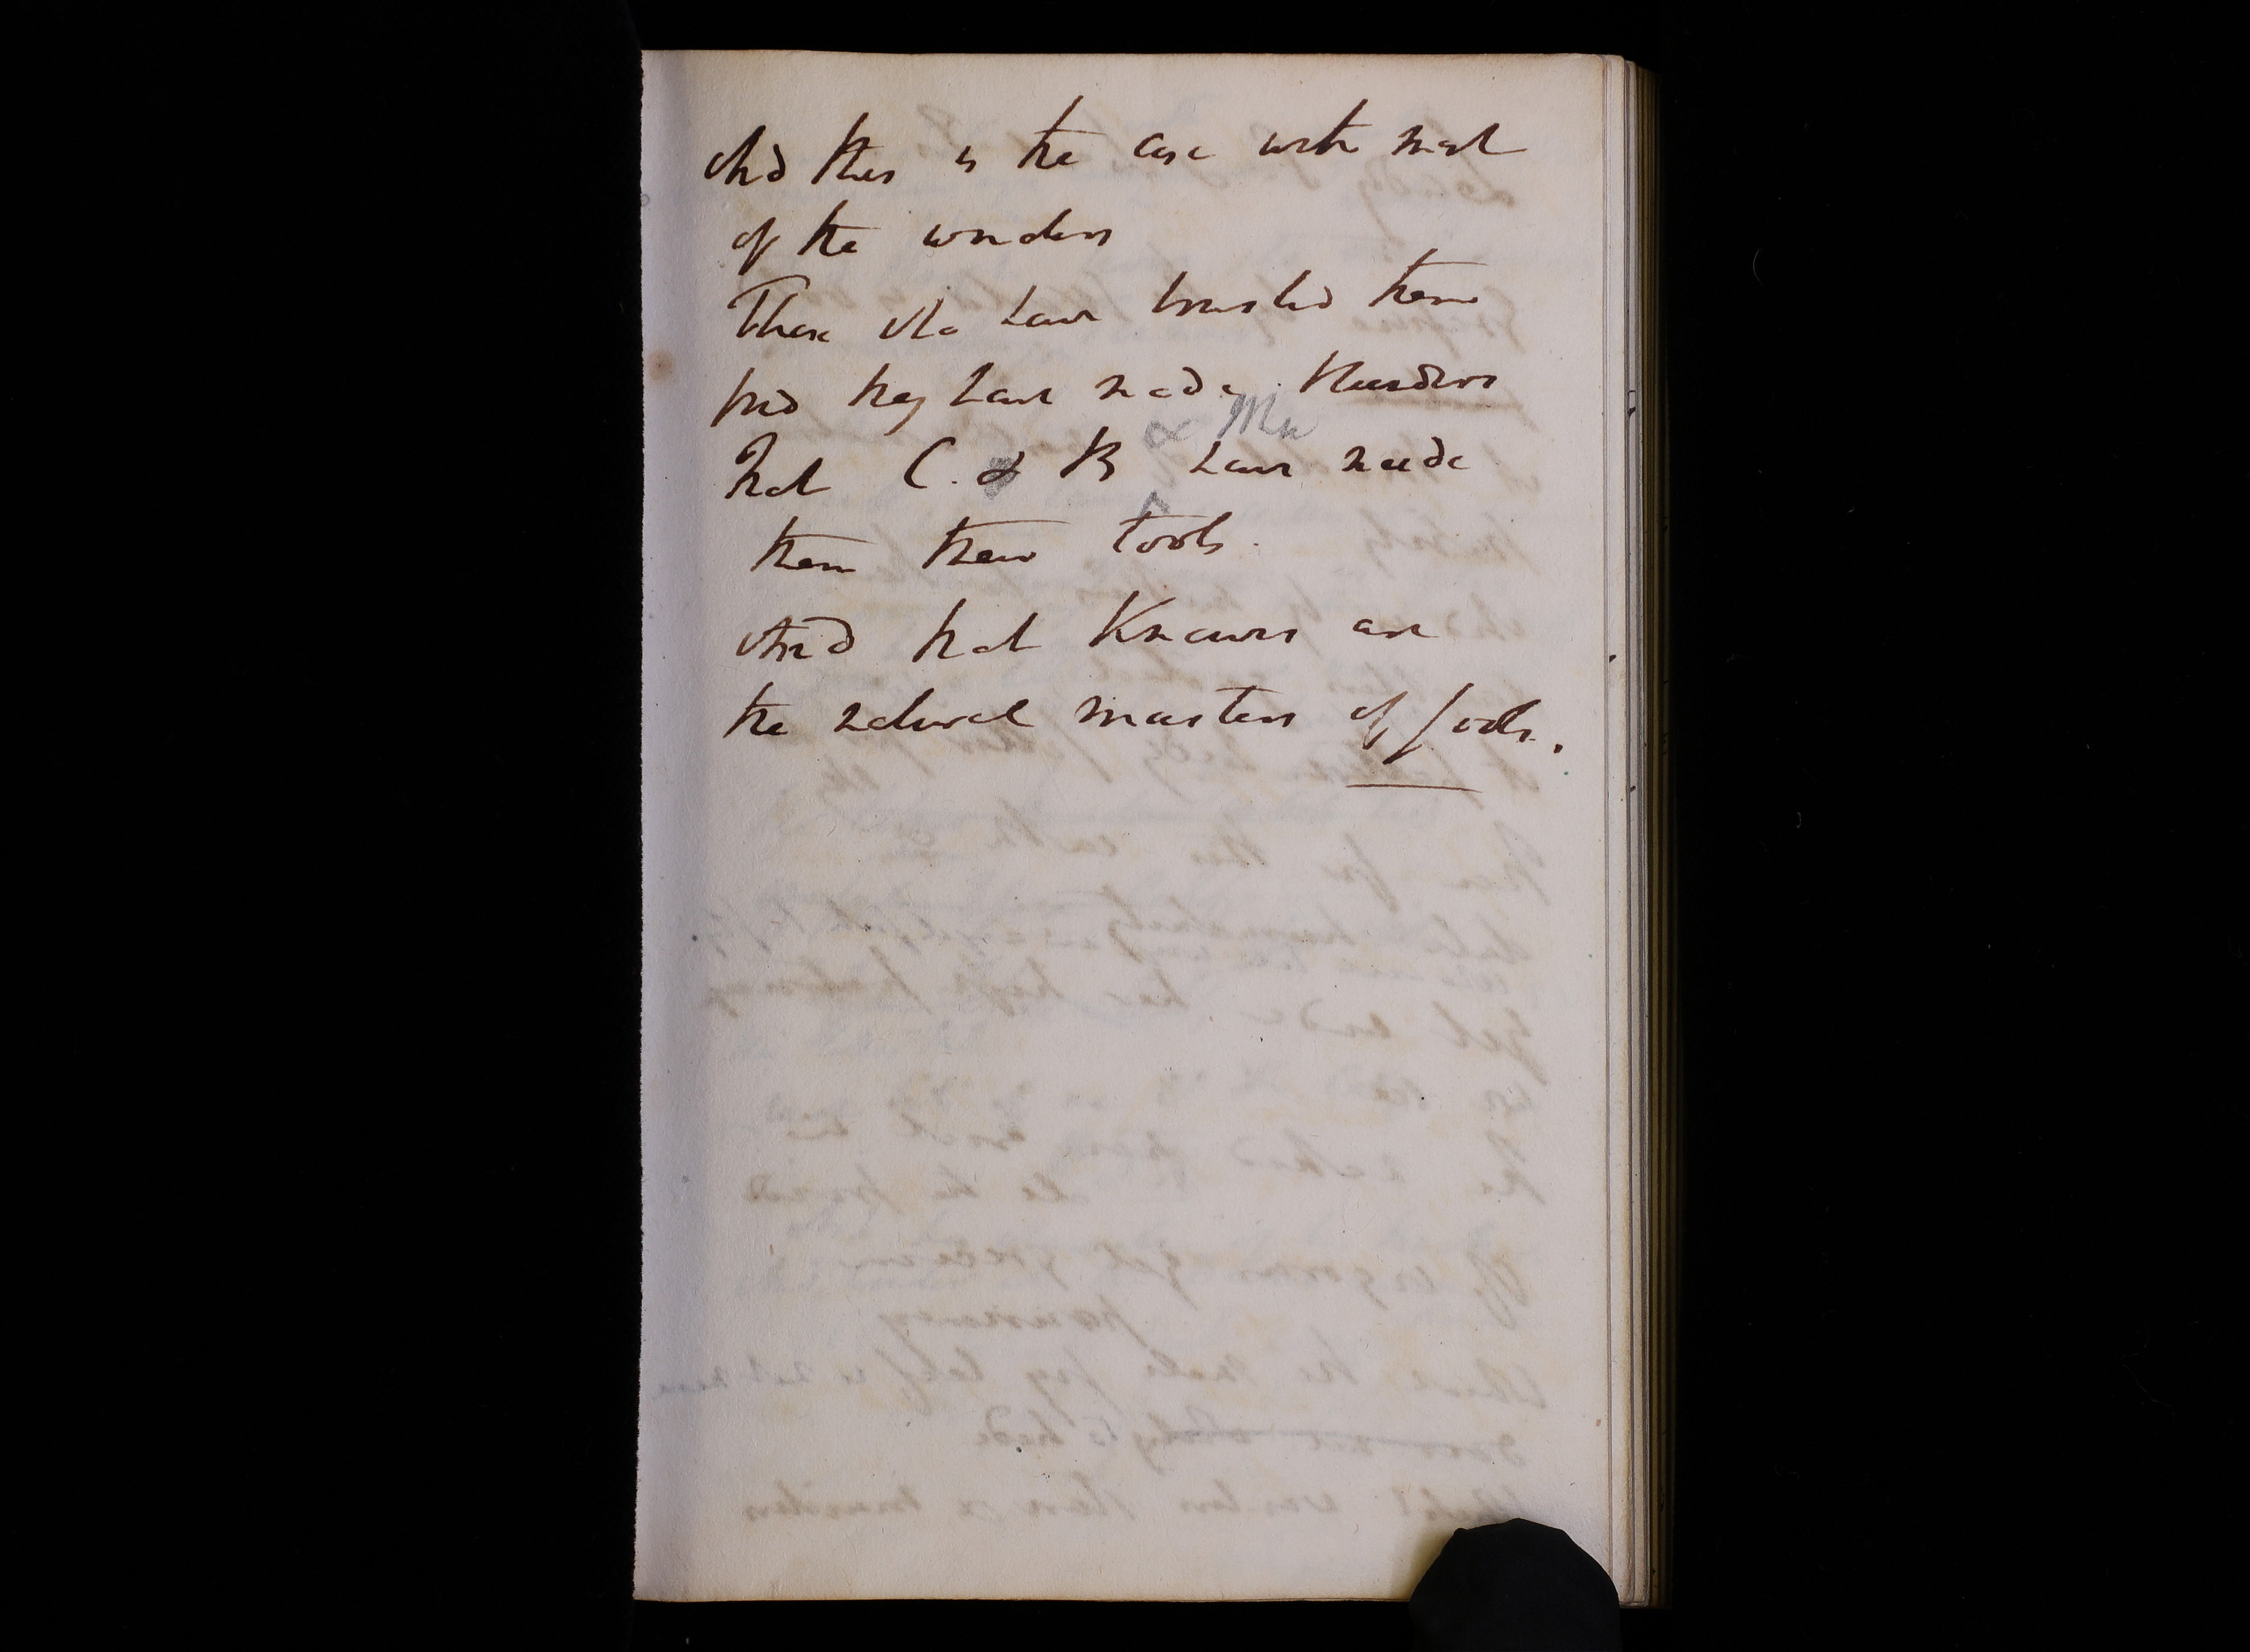 And this is the case with most
of the wonders
Those who have trusted them
find they have made blunders
& Mu
That C. & B have made
them their tools.
And that Knaves are
the natural masters of fools.